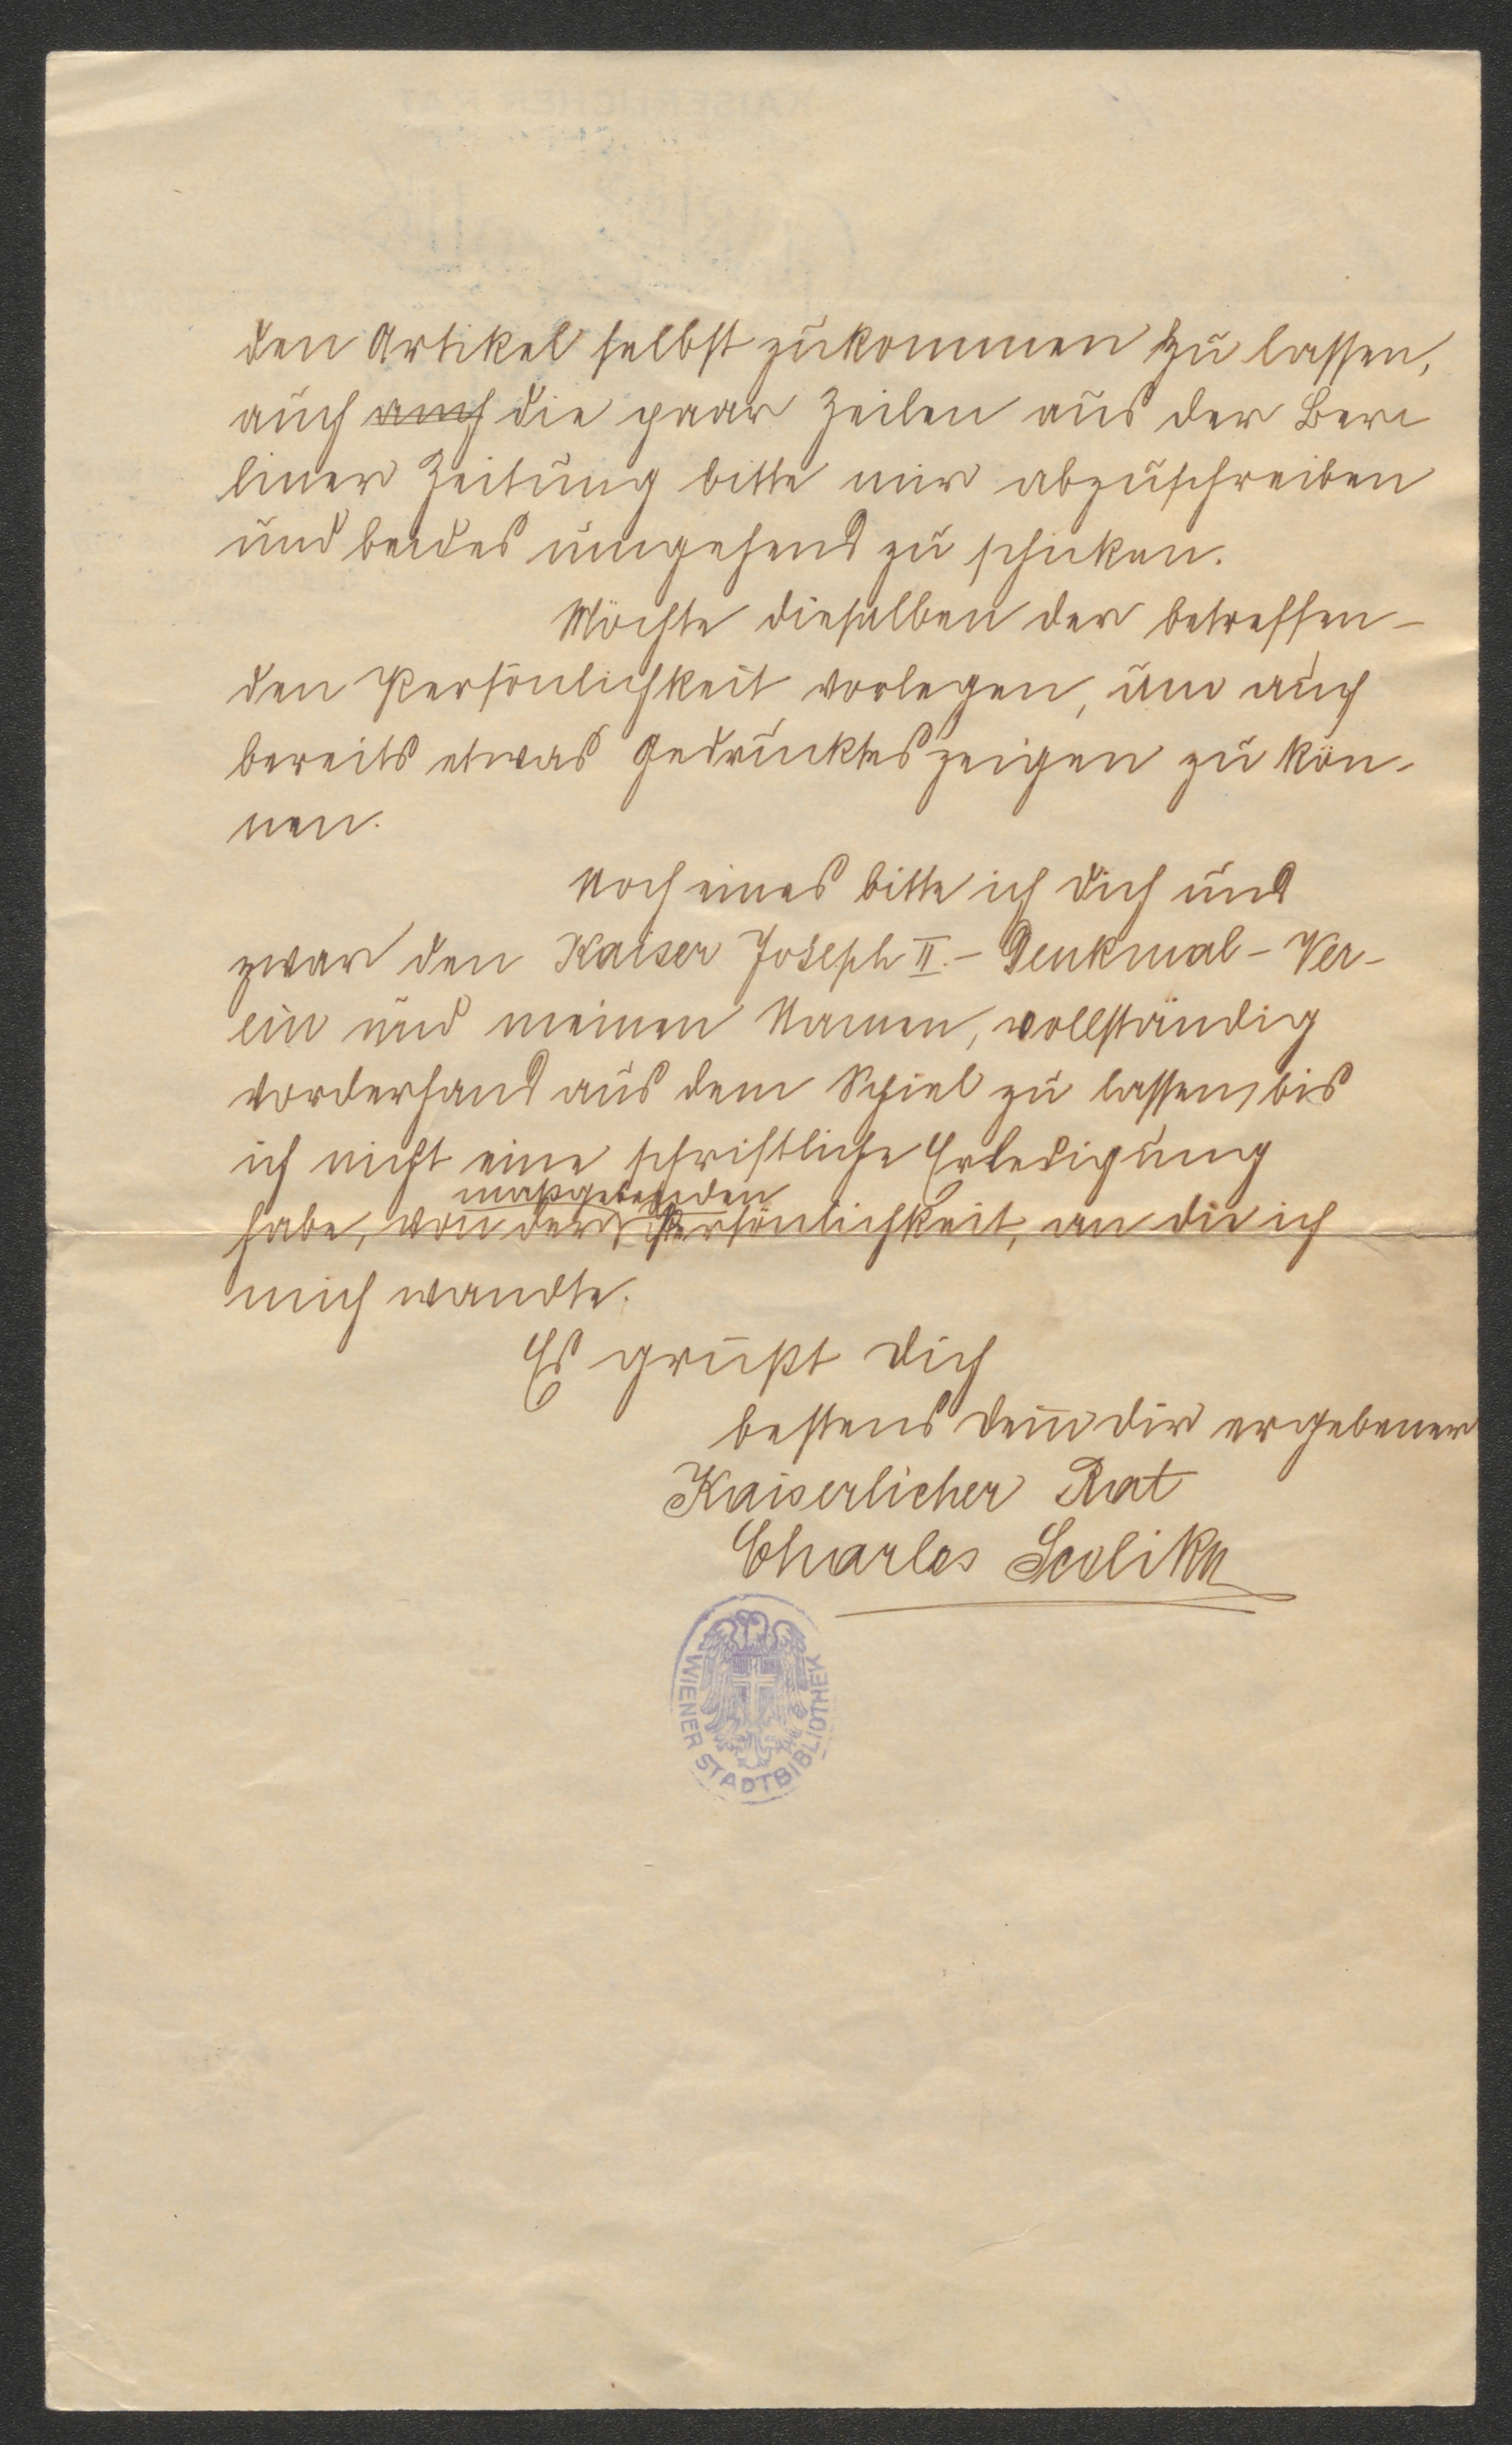 den Artikel selbst zukommen zu lassen,
auch auch die paar Zeilen aus der Ber-
liner Zeitung bitte mir abzuschreiben
und beides umgehend zu schicken.
Möchte dieselben der betreffen-
den Persönlichkeit vorlegen, um auch
bereits etwas Gedrucktes zeigen zu kön-
nen.
Noch eines bitte ich dich und
zwar den Kaiser Joseph II.-Denkmal-Ver-
ein und meinen Namen, vollständig
vorderhand aus dem Spiel zu lassen, bis
ich nicht eine schriftliche Erledigung
maßgebenden
habe, von der Persönlichkeit, an die ich
mich wandte.
Es grüßt dich
bestens dein dir ergebener
Kaiserlicher Rat
Charles Scolik
WIENER STADTBIBLIOTHEK